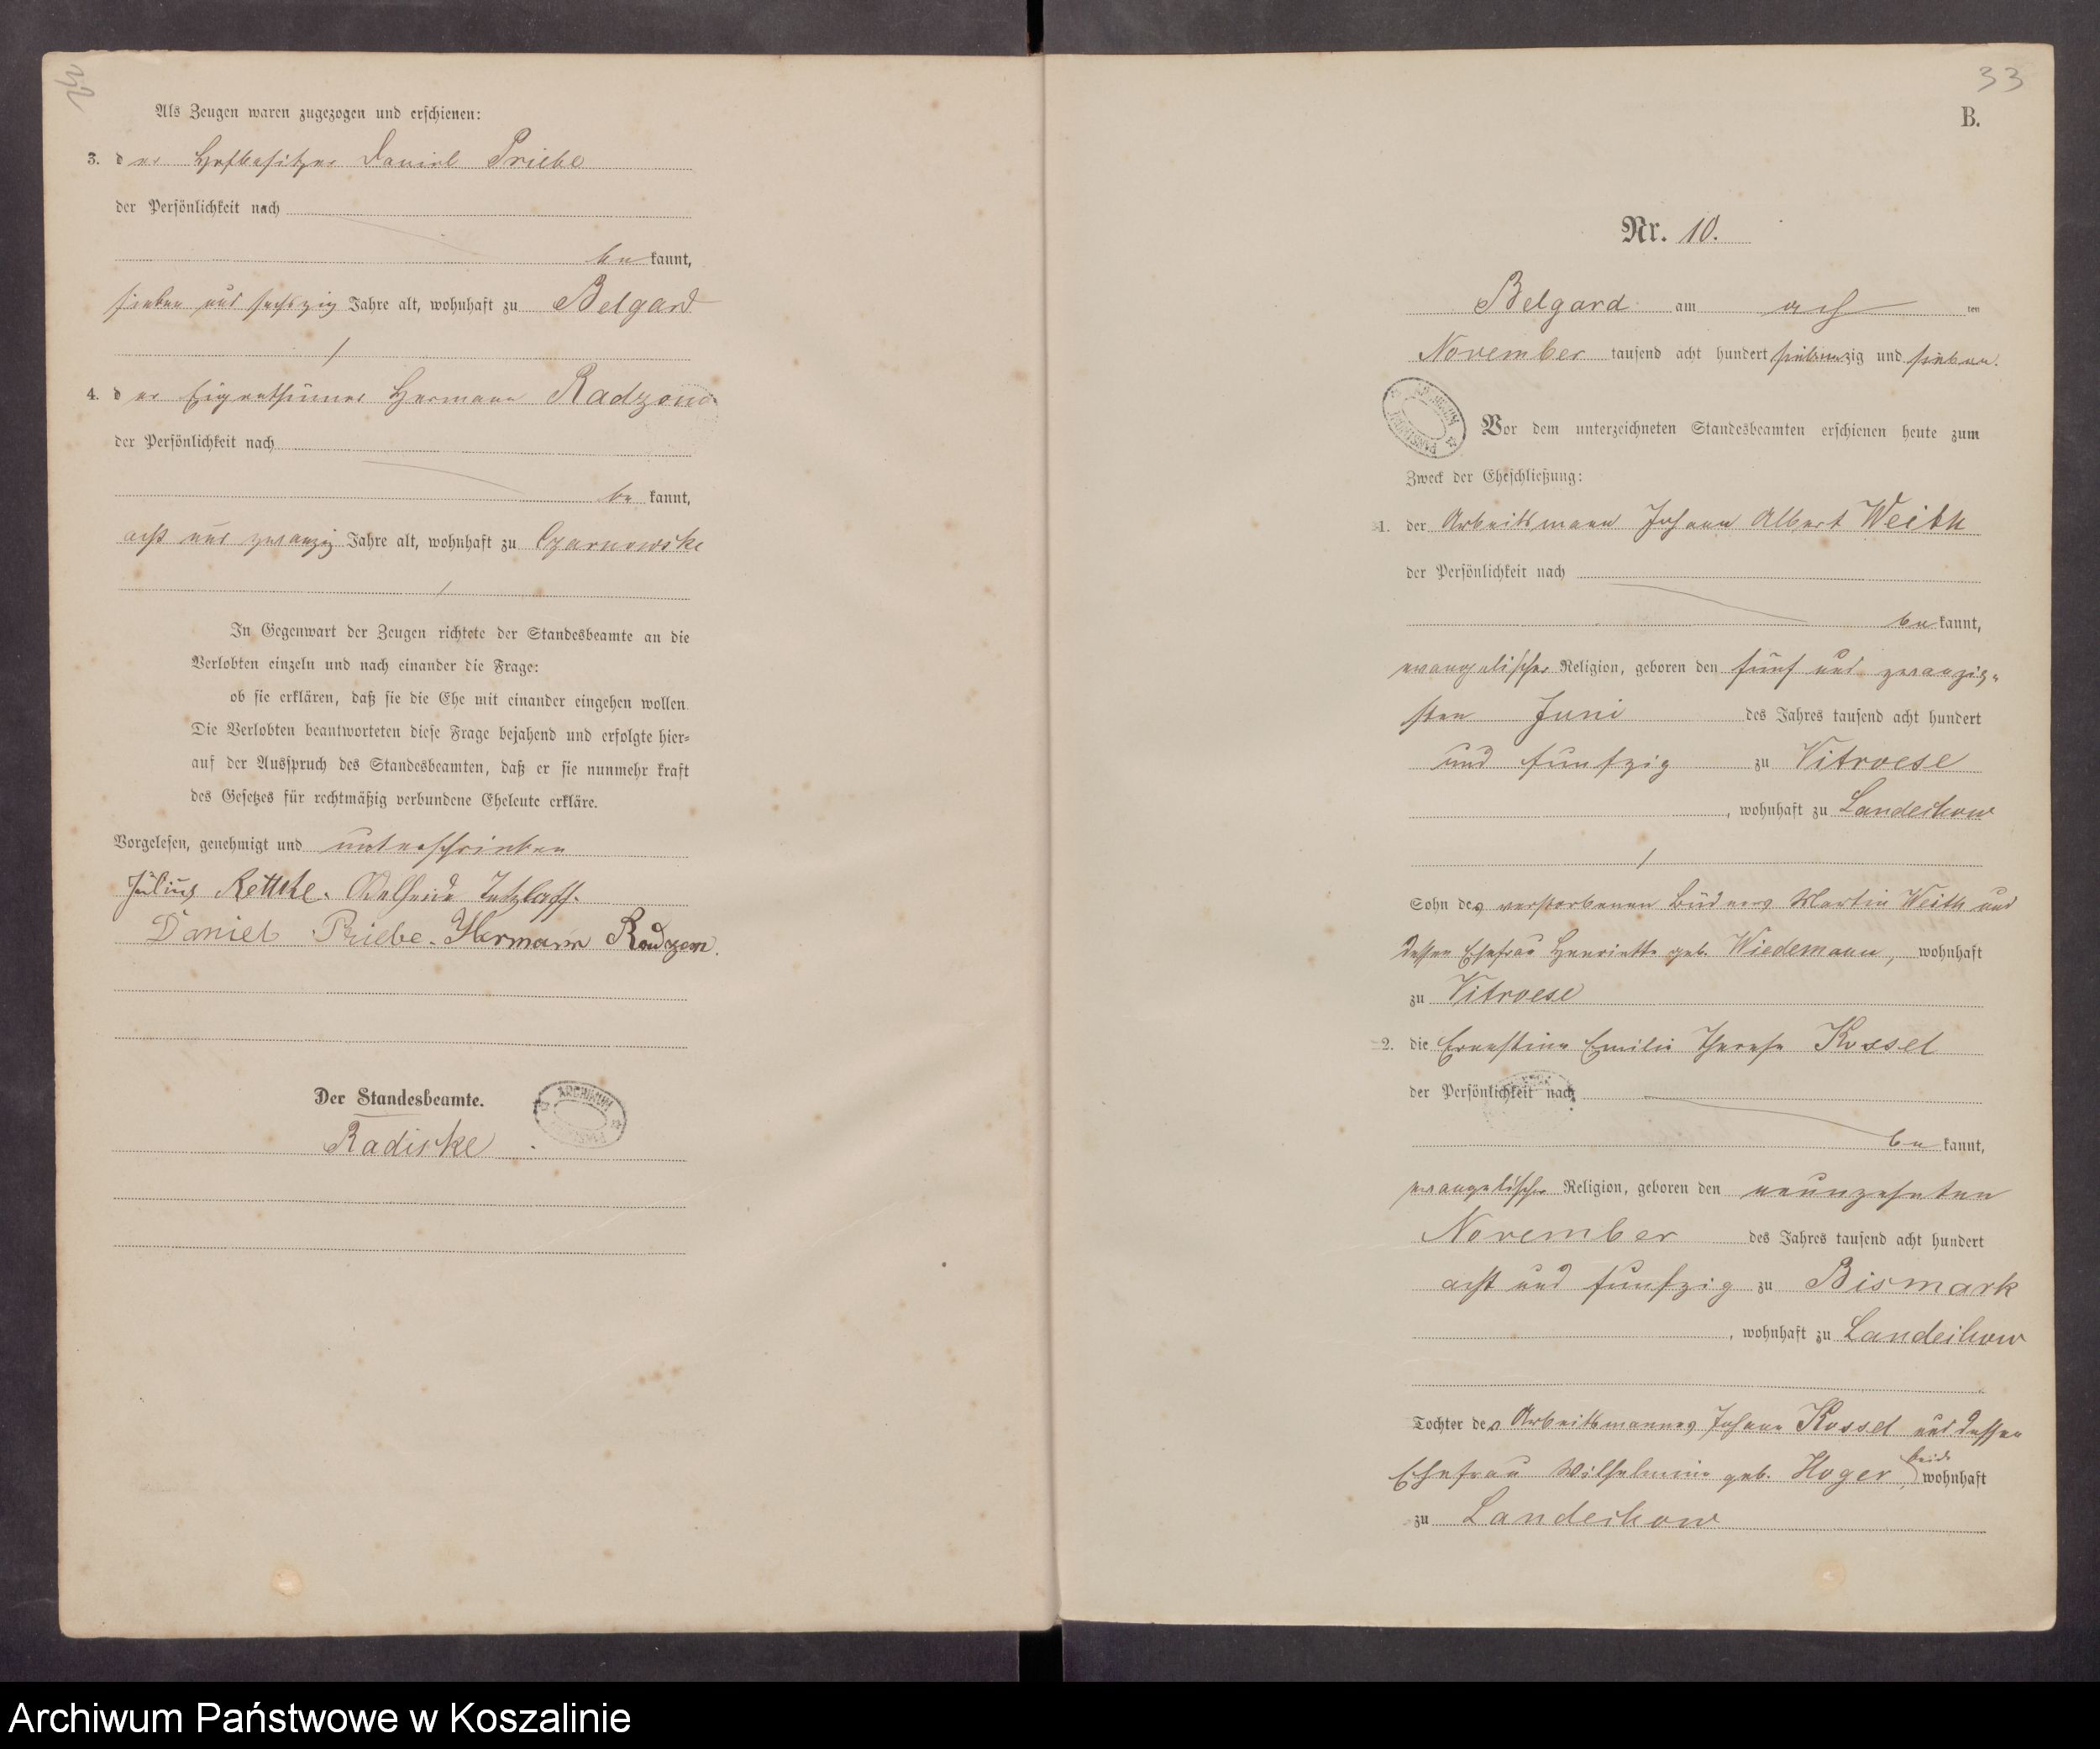 Als Zeugen waren zugezogen und erschienen:
3. der Hofbesitzer Daniel Priebe
der Persönlichkeit nach
be kannt,
sieben und sechszig Jahre alt, wohnhaft zu Belgard
4. der Eigenthümer Hermann Radzom
der Persönlichkeit nach
be kannt,
acht und zwanzig Jahre alt, wohnhaft zu Czarnowske
In Gegenwart der Zeugen richtete der Standesbeamte an die
Verlobten einzeln und nach einander die Frage:
ob sie erklären, daß sie die Ehe mit einander eingehen wollen.
Die Verlobten beantworteten diese Frage bejahend und erfolgte hier-
auf der Ausspruch des Standesbeamten, daß er sie nunmehr kraft
des Gesetzes für rechtmäßig verbundene Eheleute erkläre.
Vorgelesen, genehmigt und unterschrieben
Julius Rettcke. Tetzlaff.
Daniel Priebe. Hermann Radzom.
Der Standesbeamte.
ARCHIWUM
Radiske
33
B.
Nr. 10.
Belgard am acht ten
November tausend acht hundert siebenzig und sieben.
Vor dem unterzeichneten Standesbeamten erschienen heute zum
Zweck der Eheschließung:
1. der Arbeitsmann Johann Albert Weith
der Persönlichkeit nach
be kannt,
evangelischer Religion, geboren den fünf und zwanzig-
sten Juni des Jahres tausend acht hundert
und funfzig zu Vitroese
, wohnhaft zu Landechow
Sohn des verstorbenen Büdners Martin Weith und
dessen Ehefrau Henriette geb. Wiedemann, wohnhaft
zu Vitroese
2. die Ernestine Emilie Therese Kossel
der Persönlichkeit nach
be kannt,
evangelischer Religion, geboren den neunzehnten
November des Jahres tausend acht hundert
acht und funfzig zu Bismark
, wohnhaft zu Landechow
Tochter des Arbeitsmannes Johann Kossel und dessen
Ehefrau Wilhelmine geb. Hoger, beide wohnhaft
zu Landechow
Archiwum Państwowe w Koszalinie